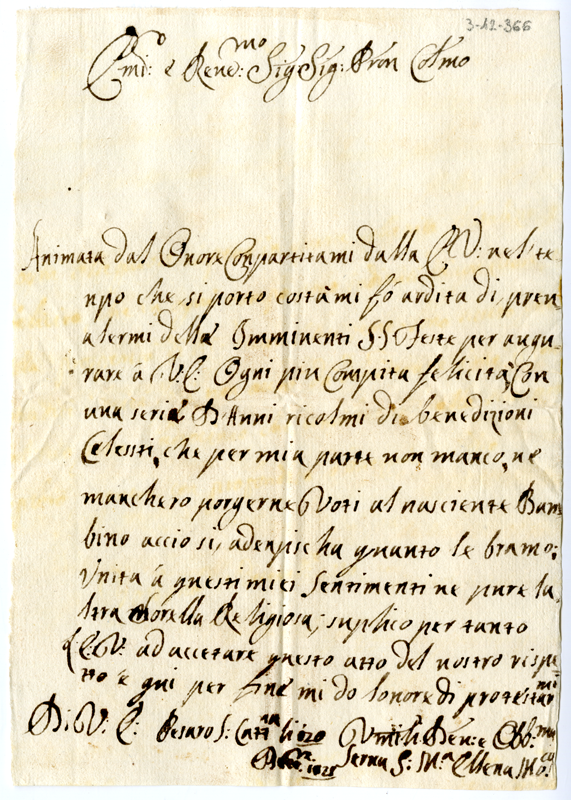 3-42-366
Em:º e Reue:mo Sig Sig: Pron Colmo
Animata dal Onore Conpartitami dalla E.V: nel te
npo che si porto costà mi fò ardita di pren
alermi delle Imminenti S.S Feste per augu
rare à V.E: Ogni piu Compita felicità, Con
una serie D'Anni ricolmi di benedizioni
Celesti, che per mia parte non manco, ne
manchero porgerne Voti al nasciente Bam
bino accio si adenpischa quanto le bramo;
Vnita à questi miei Sentimenti ne pure la
ltra Sorella Religiosa; suplico per tanto
E.V: ad accetare questo atto del nostro rispe
tto e qui per fine mi do lonore di protestarmi
D. V. E: Pesaro S: Catna li 20 Vmil: Deu: e Obb:ma
Serua S: M.a Ellena